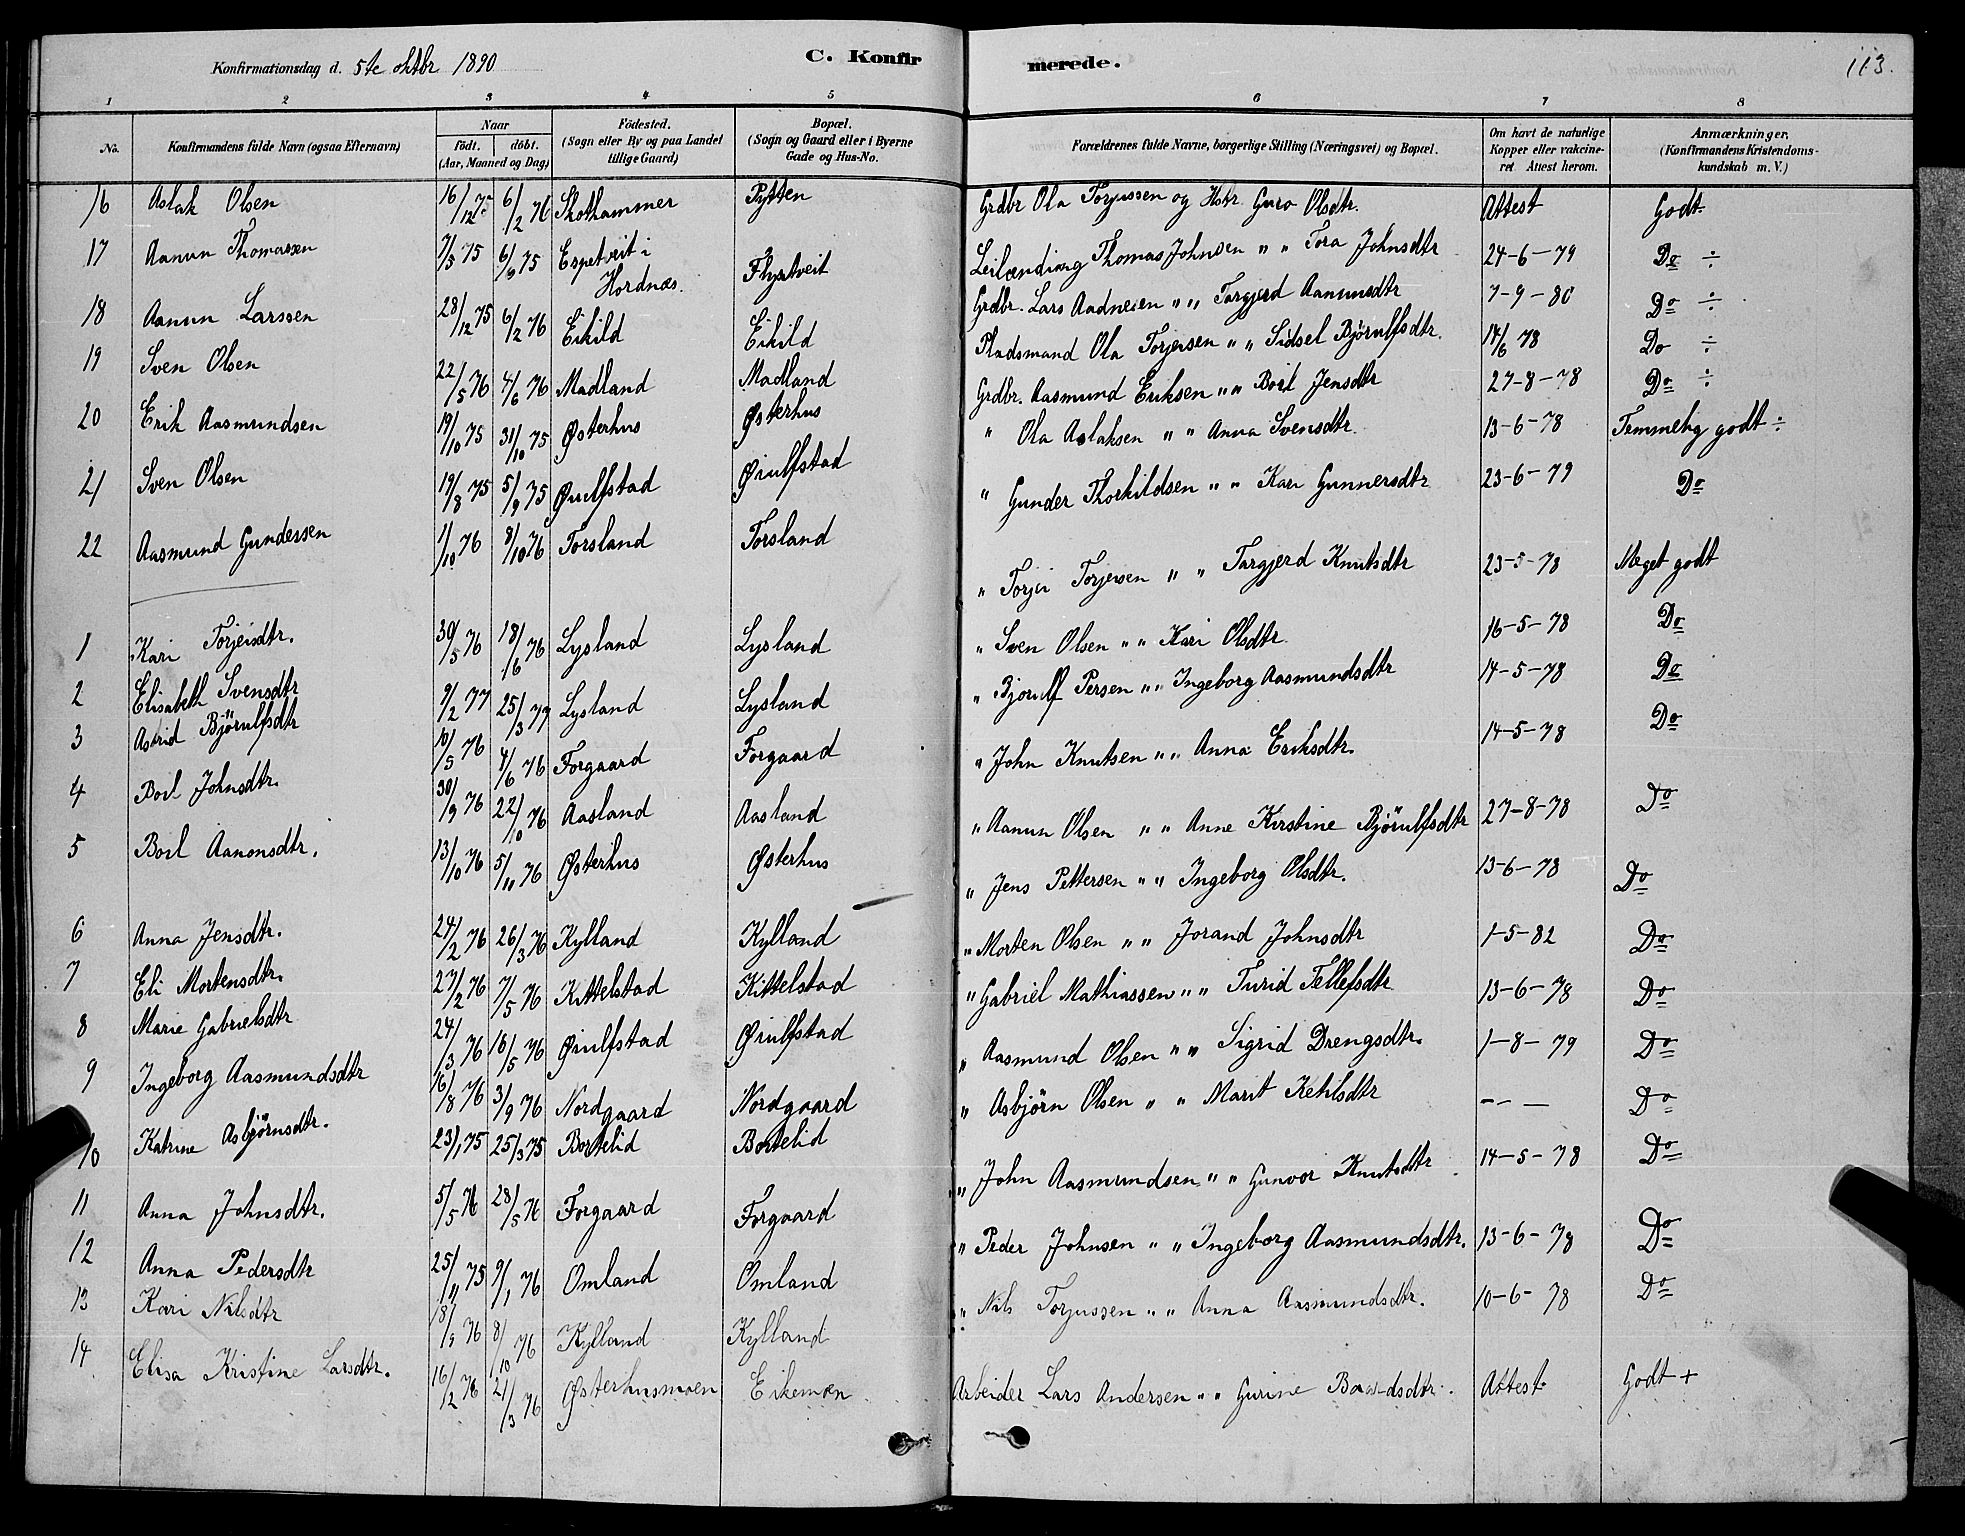 Konfirmationsdag d. 5te oktbr 1890 C. Konfirmerede. 113.
1 2 3 4 5 6 7 8
No. Konfirmandens fulde Navn (ogsaa Efternavn) Naar födt. döbt. (Aar, Maaned og Dag) Födested. (Sogn eller By og paa Landet tillige Gaard) Bopæl. (Sogn og Gaard eller i Byerne Gade og Hus-No. Forældrenes fulde Navne, borgerlige Stilling (Næringsvei) og Bopæl. Om havt de naturlige Kopper eller vakcineret Attest herom. Anmærkninger, (Konfirmandens Kristendomskundskab m. V.)
16 Aslak Olsen 16/12 75 6/2 76 Skothammer Pytten Grdbr Ola Torjussen og Hstr. Guro Olsdtr. Attest Godt
17 Aanun Thomassen 7/5 75 6/6 75 Espetveit i Hordnæs. Flystveit Leilænding Thomas Johnsen " " Tora Johnsdtr 24-6-79 Do ÷
18 Aanun Larssen 28/12 75 6/2 76 Eikild Eikild Grdbr. Lars Aadnesen " " Targjerd Aanunsdtr 7-9-80 Do ÷
19 Sven Olsen 22/5 76 4/6 76 Madland Madland Pladsmand Ola Torjersen " " Sidsel Bjørulfsdtr. 14/6 78 Do ÷
20 Erik Aasmundsen 19/10 75 31/10 75 Østerhus Østerhus Grdbr. Aasmund Eriksen " " Boil Jensdtr 27-8-78 Do ÷
21 Sven Olsen 19/8 75 5/9 75 Øiulfstad Øiulfstad " Ola Aslaksen " " Anna Svensdtr 13-6-78 Temmelig godt ÷
22 Aasmund Gunderssen 1/10 76 8/10 76 Torsland Torsland " Gunder Thorkildsen " " Kari Gunnersdtr 23-6-79 Do
1 Kari Torjeisdtr. 30/5 76 18/6 76 Lysland Lysland " Torjei Torjersen " " Targjerd Knutsdtr 23-5-78 Meget godt
2 Elisabeth Svensdtr 9/2 77 25/3 77 Lysland Lysland " Sven Olsen " " Kari Olsdtr 16-5-78 Do
3 Astrid Bjørulfsdtr 10/5 76 4/6 76 Forgaard Forgaard " Bjørulf Persen " " Ingeborg Aasmundsdtr 14-5-78 Do
4 Boil Johnsdtr. 30/9 76 22/10 76 Aasland Aasland " John Knutsen " " Anna Eriksdtr. 14-5-78 Do
5 Boil Aanonsdtr. 13/10 76 5/11 76 Østerhus Østerhus " Aanun Olsen " " Anne Kirstine Bjørulfsdtr 27-8-78 Do
6 Anna Jensdtr. 24/2 76 26/3 76 Kylland Kylland " Jens Pettersen " " Ingeborg Olsdtr. 13-6-78 Do
7 Eli Mortensdtr. 27/2 76 7/5 76 Kittelstad Kittelstad " Morten Olsen " " Jorand Johnsdtr 1-5-82 Do
8 Marie Gabrielsdtr 24/3 76 16/5 76 Øiulfstad Øiulfstad " Gabriel Mathiassen " " Turid Tellefsdtr 13-6-78 Do
9 Ingeborg Aasmundsdtr 16/8 76 3/9 76 Nordgaard Nordgaard " Aasmund Olsen " " Sigrid Drengsdtr. 1-8-79 Do
10 Katrine Asbjørnsdtr. 23/1 75 25/3 75 Bortelid Bortelid " Asbjørn Olsen " " Marit Ketilsdtr - - - Do
11 Anna Johnsdtr. 5/5 76 28/5 76 Forgaard Forgaard " John Aasmundsen " " Gunvor Knutsdtr 14-5-78 Do
12 Anna Pedersdtr 25/11 75 9/1 76 Omland Omland " Peder Johnsen " " Ingeborg Aasmundsdtr. 13-6-78 Do
13 Kari Nilsdtr 18/9 76 8/10 76 Kylland Kylland " Nils Torjussen " " Anna Aasmundsdtr. 10-6-78 Do
14 Elisa Kristine Larsdtr. 16/2 76 21/3 76 Østerhusmoen Eikemoen Arbeider Lars Andersen " " Gurine Attest Godt +